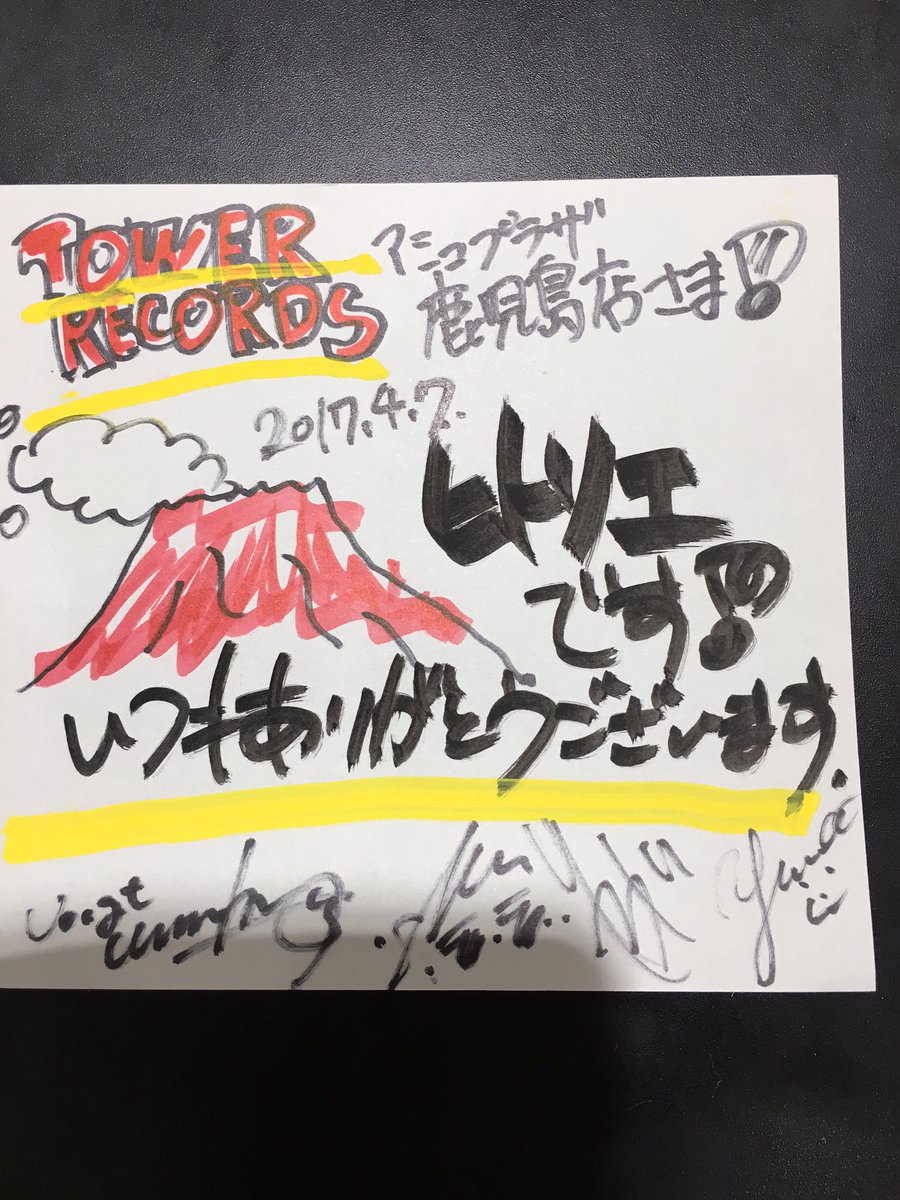 TOWER
RECORDS
マニコプラザ
鹿児島店さま!!!
2017.4.7.
ヒトリエ
です!!
いつもありがとうございます.
Vo.gt